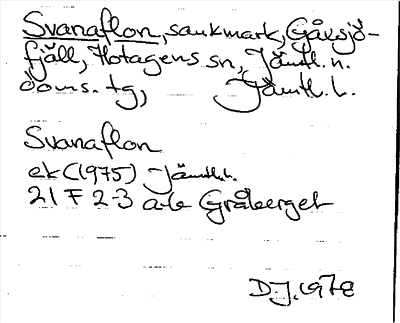 Svanaflon, sankmark, Gåxsjö-
fjäll, Hotagens sn, Jämtl. n.
doms. tg, Jämtl. l.
Svanaflon
ek (1975) Jämtl. l.
21 F 2-3 a-b Gråberget
D.J. 1978